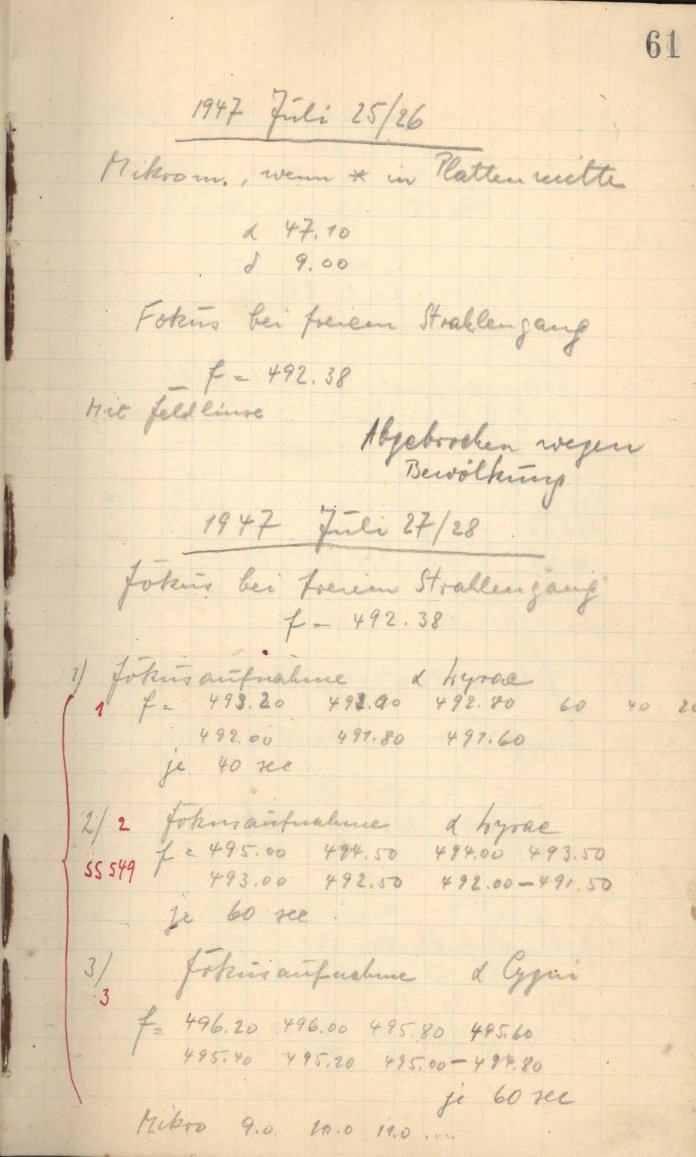 61
1947 Juli 25/26
Mikrom., wenn * in Plattenmitte
α 47.10
δ 9.00
Fokus bei freiem Strahlengang
f = 492.38
Mit Feldlinse
Abgebrochen wegen
Bewölkung
1947 Juli 27/28
Fokus bei freiem Strahlengang
f = 492.38
1) Fokusaufnahme α Lyrae
1 f = 493.20 493.00 492.80 60 40 20
492.00 491.80 491.60
je 40 sec
2) 2 Fokusaufnahme α Lyrae
f = 495.00 494.50 494.00 493.50
SS 549 493.00 492.50 492.00 – 491.50
je 60 sec.
3) Fokusaufnahme α Cygni
3
f = 496.20 496.00 495.80 495.60
495.40 495.20 495.00 – 494.80
je 60 sec
Mikro 9.0 10.0 11.0 ....